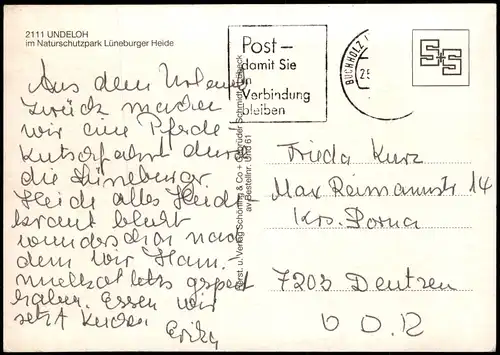 2111 UNDELOH
im Naturschutzpark Lüneburger Heide
Aus dem Urlaub
zurück machen
wir eine Pferde
Kutschfahrt durch
die Lüneburger
Heide alles Heide-
kraut blüht
wunderschön nach
dem wir Ham.
haben. Essen wir
jetzt Kuchen
Erika
Post –
damit Sie
in
Verbindung
bleiben
BUCHHOLZ
25
S+S
Herst. u. Verlag Schöning & Co + Gebrüder Schmidt, Lübeck
Bestellnr. Und 61
Frieda Kurz
Max Reimannstr 14
Krs. Borna
7203 Deutzen
DDR